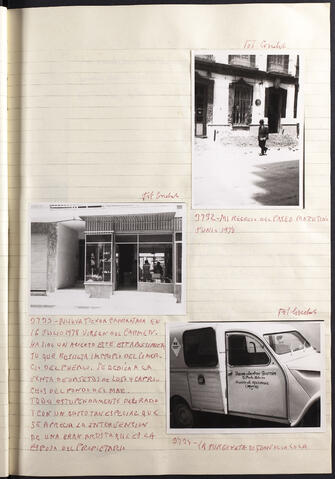 Fot. Condul
3732-MI REGRESO DEL PASEO MATUTINO
JUNIO 1978
Fot. Condul
3733-NUEVA TIENDA CAMARIÑANA EN
16 JULIO 1978 VIRGEN DEL CARMEN.
HA SIDO UN ACIERTO ESTE ESTABLECIMIEN
TO QUE RESULTA IMPROPIO DEL COMER-
CIO DEL PUEBLO. SE DEDICA A LA
VENTA DE OBJETOS DE LOZA Y CAPRI-
CHOS DEL FONDO DEL MAR.
TODO ESTUPENDAMENTE DECORADO
Y CON UN GUSTO TAN ESPECIAL QUE
SE APRECIA LA INTERVENSION
DE UNA GRAN ARTISTA QUE ES LA
ESPOSA DEL PROPIETARIO.
Fot. Condul
3734-LA FURGONETA DE JUAN